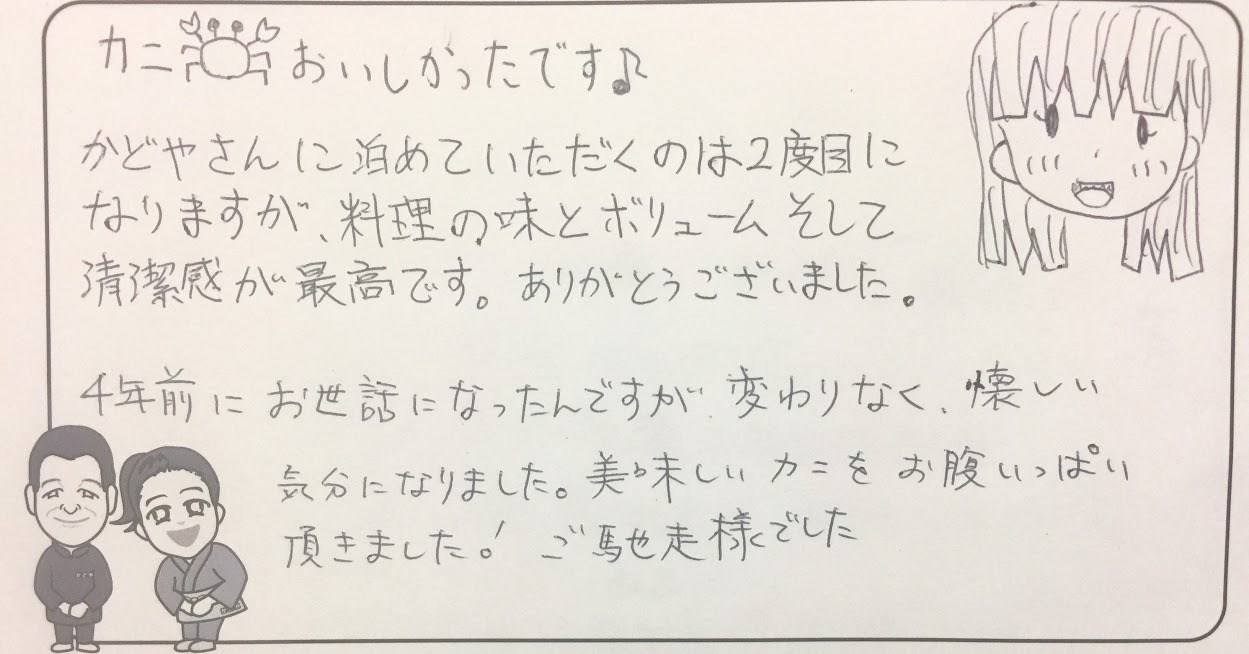 カニおいしかったです♪
かどやさんに泊めていただくのは2度目に
なりますが、料理の味とボリュームそして
清潔感が最高です。ありがとうございました。
4年前にお世話になったんですが、変わりなく、懐しい
気分になりました。美味しいカニをお腹いっぱい
頂きました！ご馳走様でした